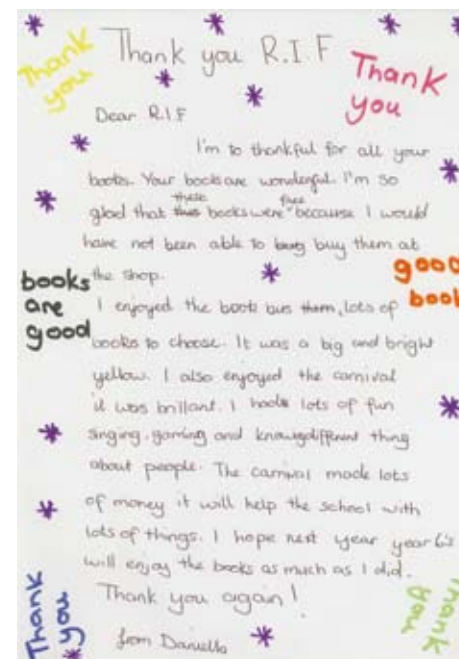 Thank you
Thank you R.I.F
Thank you
Dear R.I.F
I'm to thankful for all your
books. Your books are wonderful. I'm so
these free
glad that this books were because I would
have not been able to buy them at
the shop.
books are good
good book
I enjoyed the book bus them, lots of
books to choose. It was a big and bright
yellow. I also enjoyed the carnival
it was brillant. I had lots of fun
singing, gaming and knowing different thing
about people. The carnival made lots
of money it will help the school with
lots of things. I hope next year year 6's
will enjoy the books as much as I did.
Thank you
Thank you again!
Thank you
from Daniella